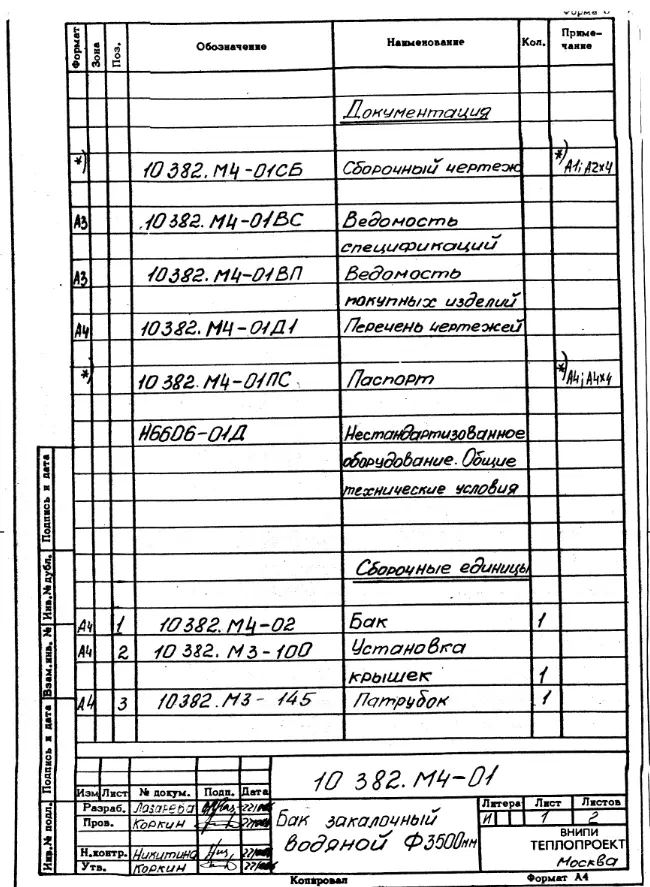 Формат Зона Поз. Обозначение Наименование Кол. Приме-
чание
Документация
*) 10382.М4-01СБ Сборочный чертеж *) А1; А2х4
А3 10382.М4-01ВС Ведомость
спецификаций
А3 10382.М4-01ВП Ведомость
покупных изделий
А4 10382.М4-01Д1 Перечень чертежей
*) 10382.М4-01ПС Паспорт *) А4; А4х4
Н6606-01Д Нестандартизованное
оборудование. Общие
технические условия
Сборочные единицы
А4 1 10382.М4-02 Бак 1
А4 2 10382.М3-100 Установка
крышек 1
А4 3 10382.М3-145 Патрубок 1
Подпись и дата
Инв.№ дубл.
Взам.инв. №
Подпись и дата
Инв.№ подл.
10 382.М4-01
Изм Лист № докум. Подп. Дата
Разраб. Лазарева
Пров. Коркин
Н.контр. Никитина
Утв. Коркин
Бак закалочный
водяной Ф3500мм
Литера Лист Листов
И 1 2
ВНИПИ
ТЕПЛОПРОЕКТ
Москва
Копировал Формат А4